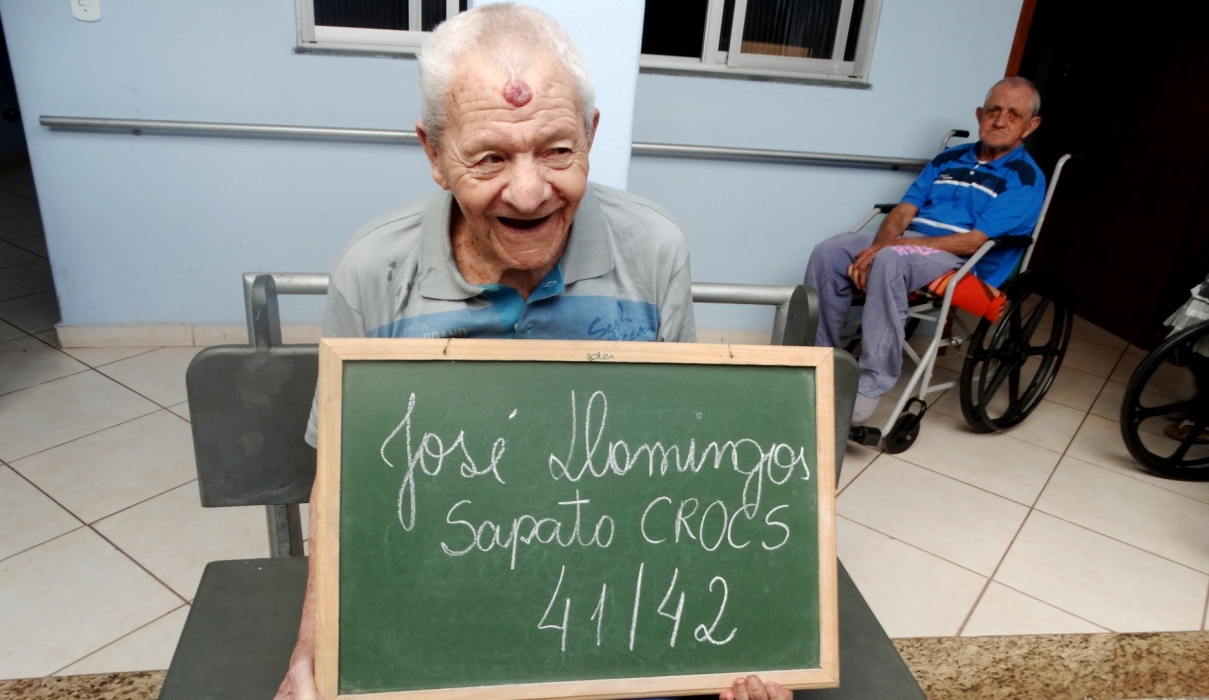 José Domingos
Sapato CROCS
41/42